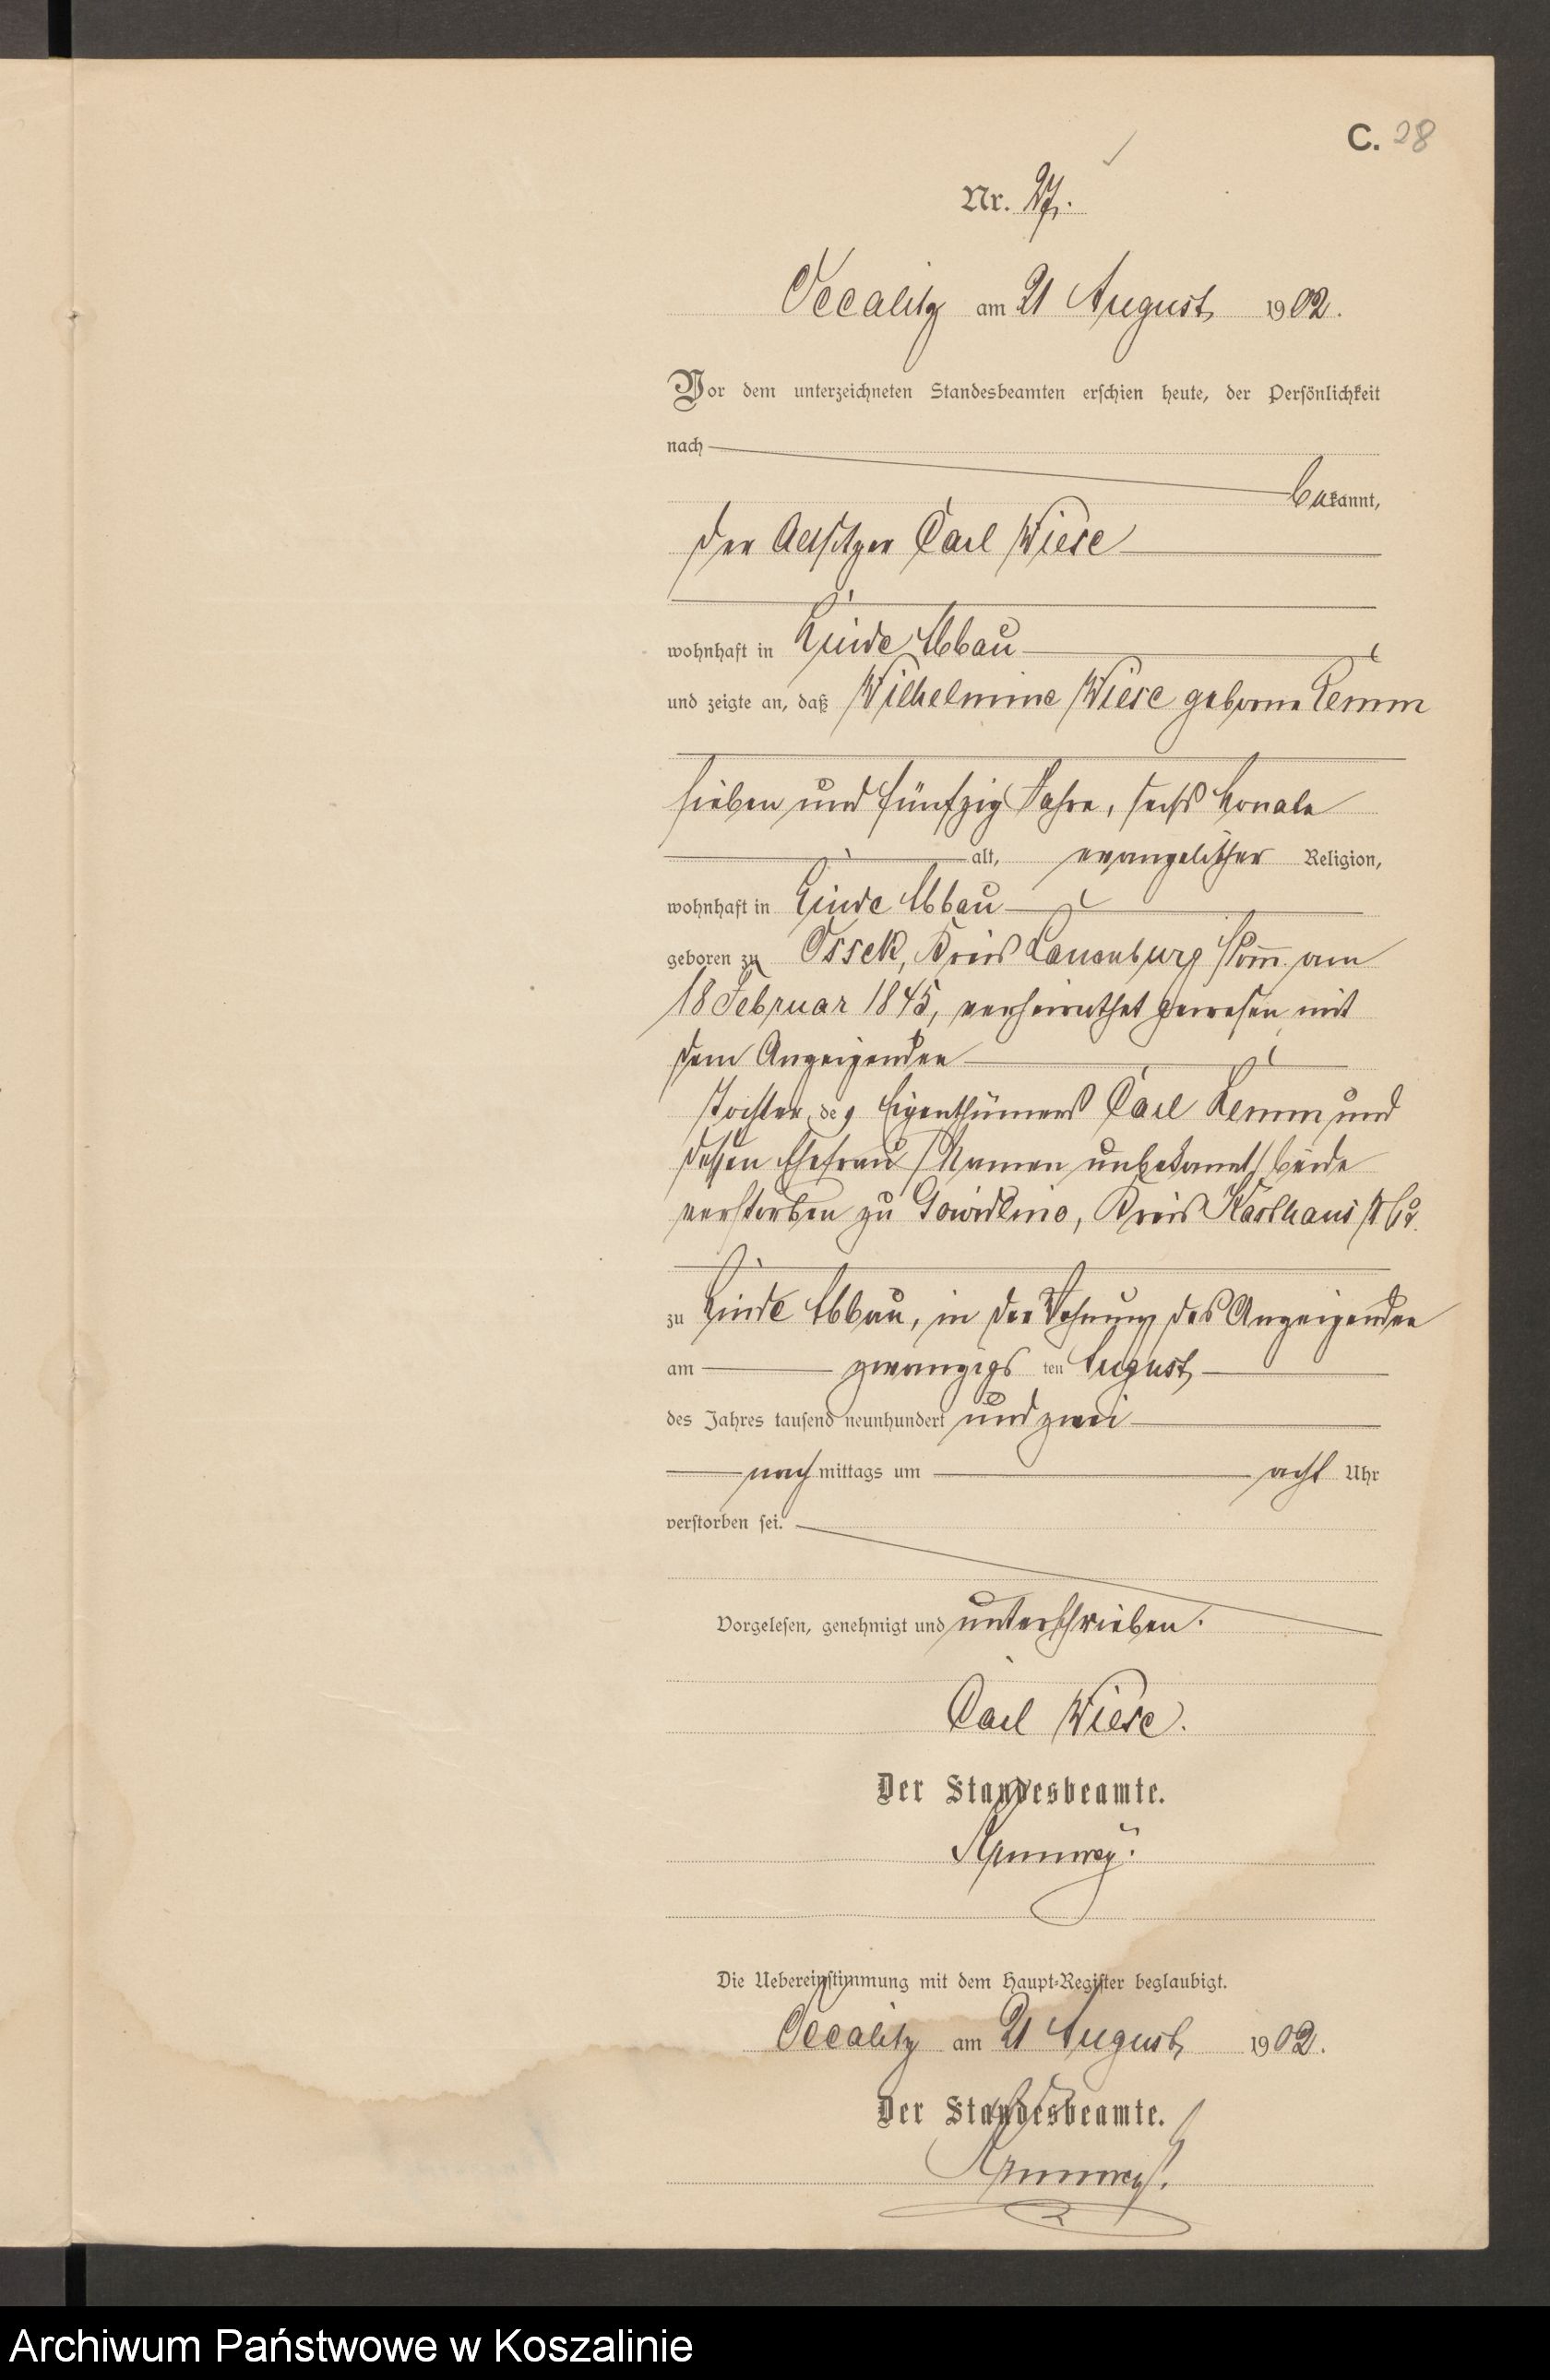 C. 28
Nr. 27.
Occalitz am 21 August 1902.
Vor dem unterzeichneten Standesbeamten erschien heute, der Persönlichkeit
nach
bekannt,
der Altsitzer Carl Wiese
wohnhaft in Linde Abbau
und zeigte an, daß Wilhelmine Wiese geborne Lemm
sieben und fünfzig Jahre, sechs Monate
alt, evangelischer Religion,
wohnhaft in Linde Abbau
geboren zu Ossek, Kreis Lauenburg Pom. am
18 Februar 1845, verheirathet gewesen mit
dem Anzeigenden
Tochter des Eigenthümers Carl Lemm und
dessen Ehefrau (Namen unbekannt) beide
verstorben zu Gowidlino, Kreis Karthaus
zu Linde Abbau, in der Wohnung des Anzeigenden
am zwanzigsten August
des Jahres tausend neunhundert und zwei
nachmittags um acht Uhr
verstorben sei.
Vorgelesen, genehmigt und unterschrieben.
Carl Wiese.
Der Standesbeamte.
Die Uebereinstimmung mit dem Haupt-Register beglaubigt.
Occalitz am 21 August 1902.
Der Standesbeamte.
Archiwum Państwowe w Koszalinie